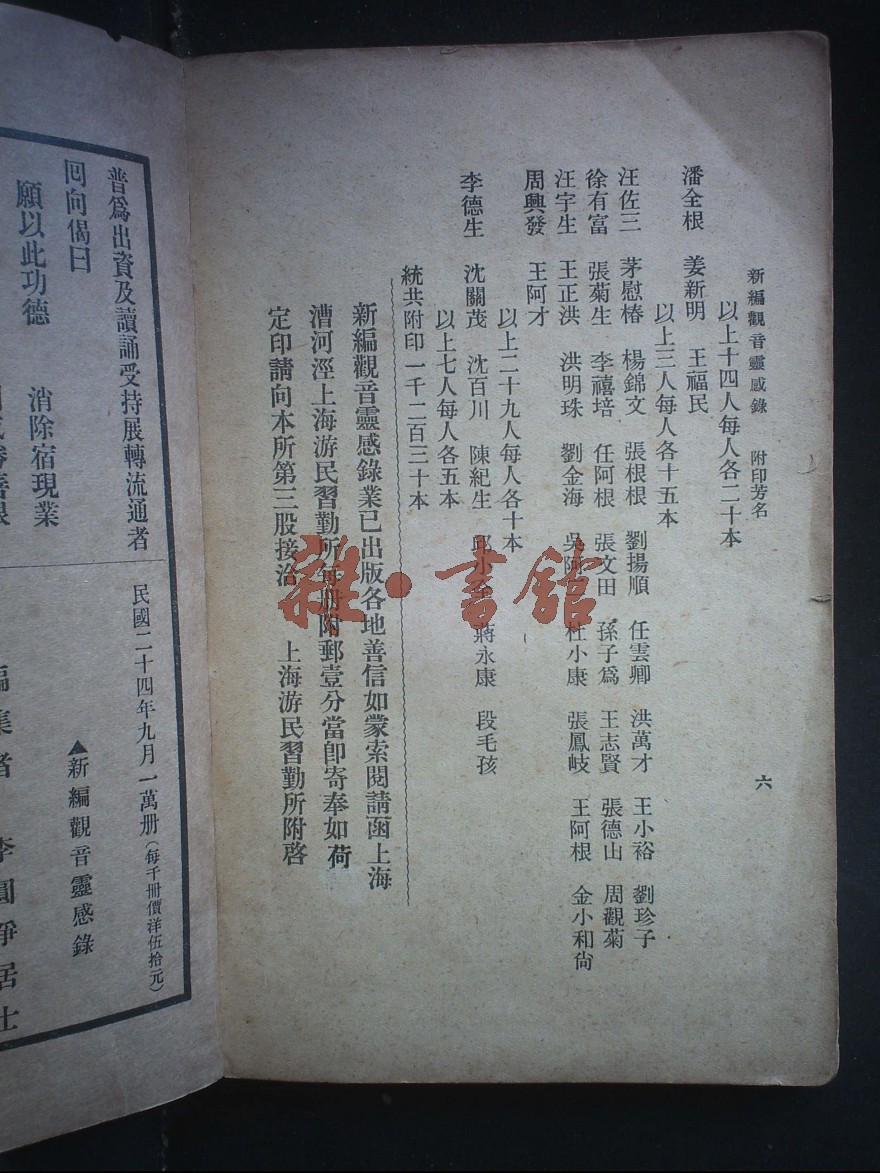 新編觀音靈感錄 附印芳名 六
以上十四人每人各二十本
潘全根 姜新明 王福民
以上三人每人各十五本
汪佐三 茅慰椿 楊錦文 張根根 劉揚順 任雲卿 洪萬才 王小裕 劉珍子
徐有富 張菊生 李禧培 任阿根 張文田 孫子爲 王志賢 張德山 周觀菊
汪宇生 王正洪 洪明珠 劉金海 吳阿 杜小康 張鳳岐 王阿根 金小和尙
周興發 王阿才
以上二十九人每人各十本
李德生 沈關茂 沈百川 陳紀生 邱小 蔣永康 段毛孩
以上七人每人各五本
統共附印一千二百三十本
新編觀音靈感錄業已出版各地善信如蒙索閱請函上海
漕河涇上海游民習勤所每册附郵壹分當卽寄奉如荷
定印請向本所第三股接洽 上海游民習勤所附啓
雜·書館
普爲出資及讀誦受持展轉流通者
囘向偈曰
願以此功德 消除宿現業
民國二十四年九月一萬册(每千冊價洋伍拾元)
▲新編觀音靈感錄
編集者 李圓淨居士